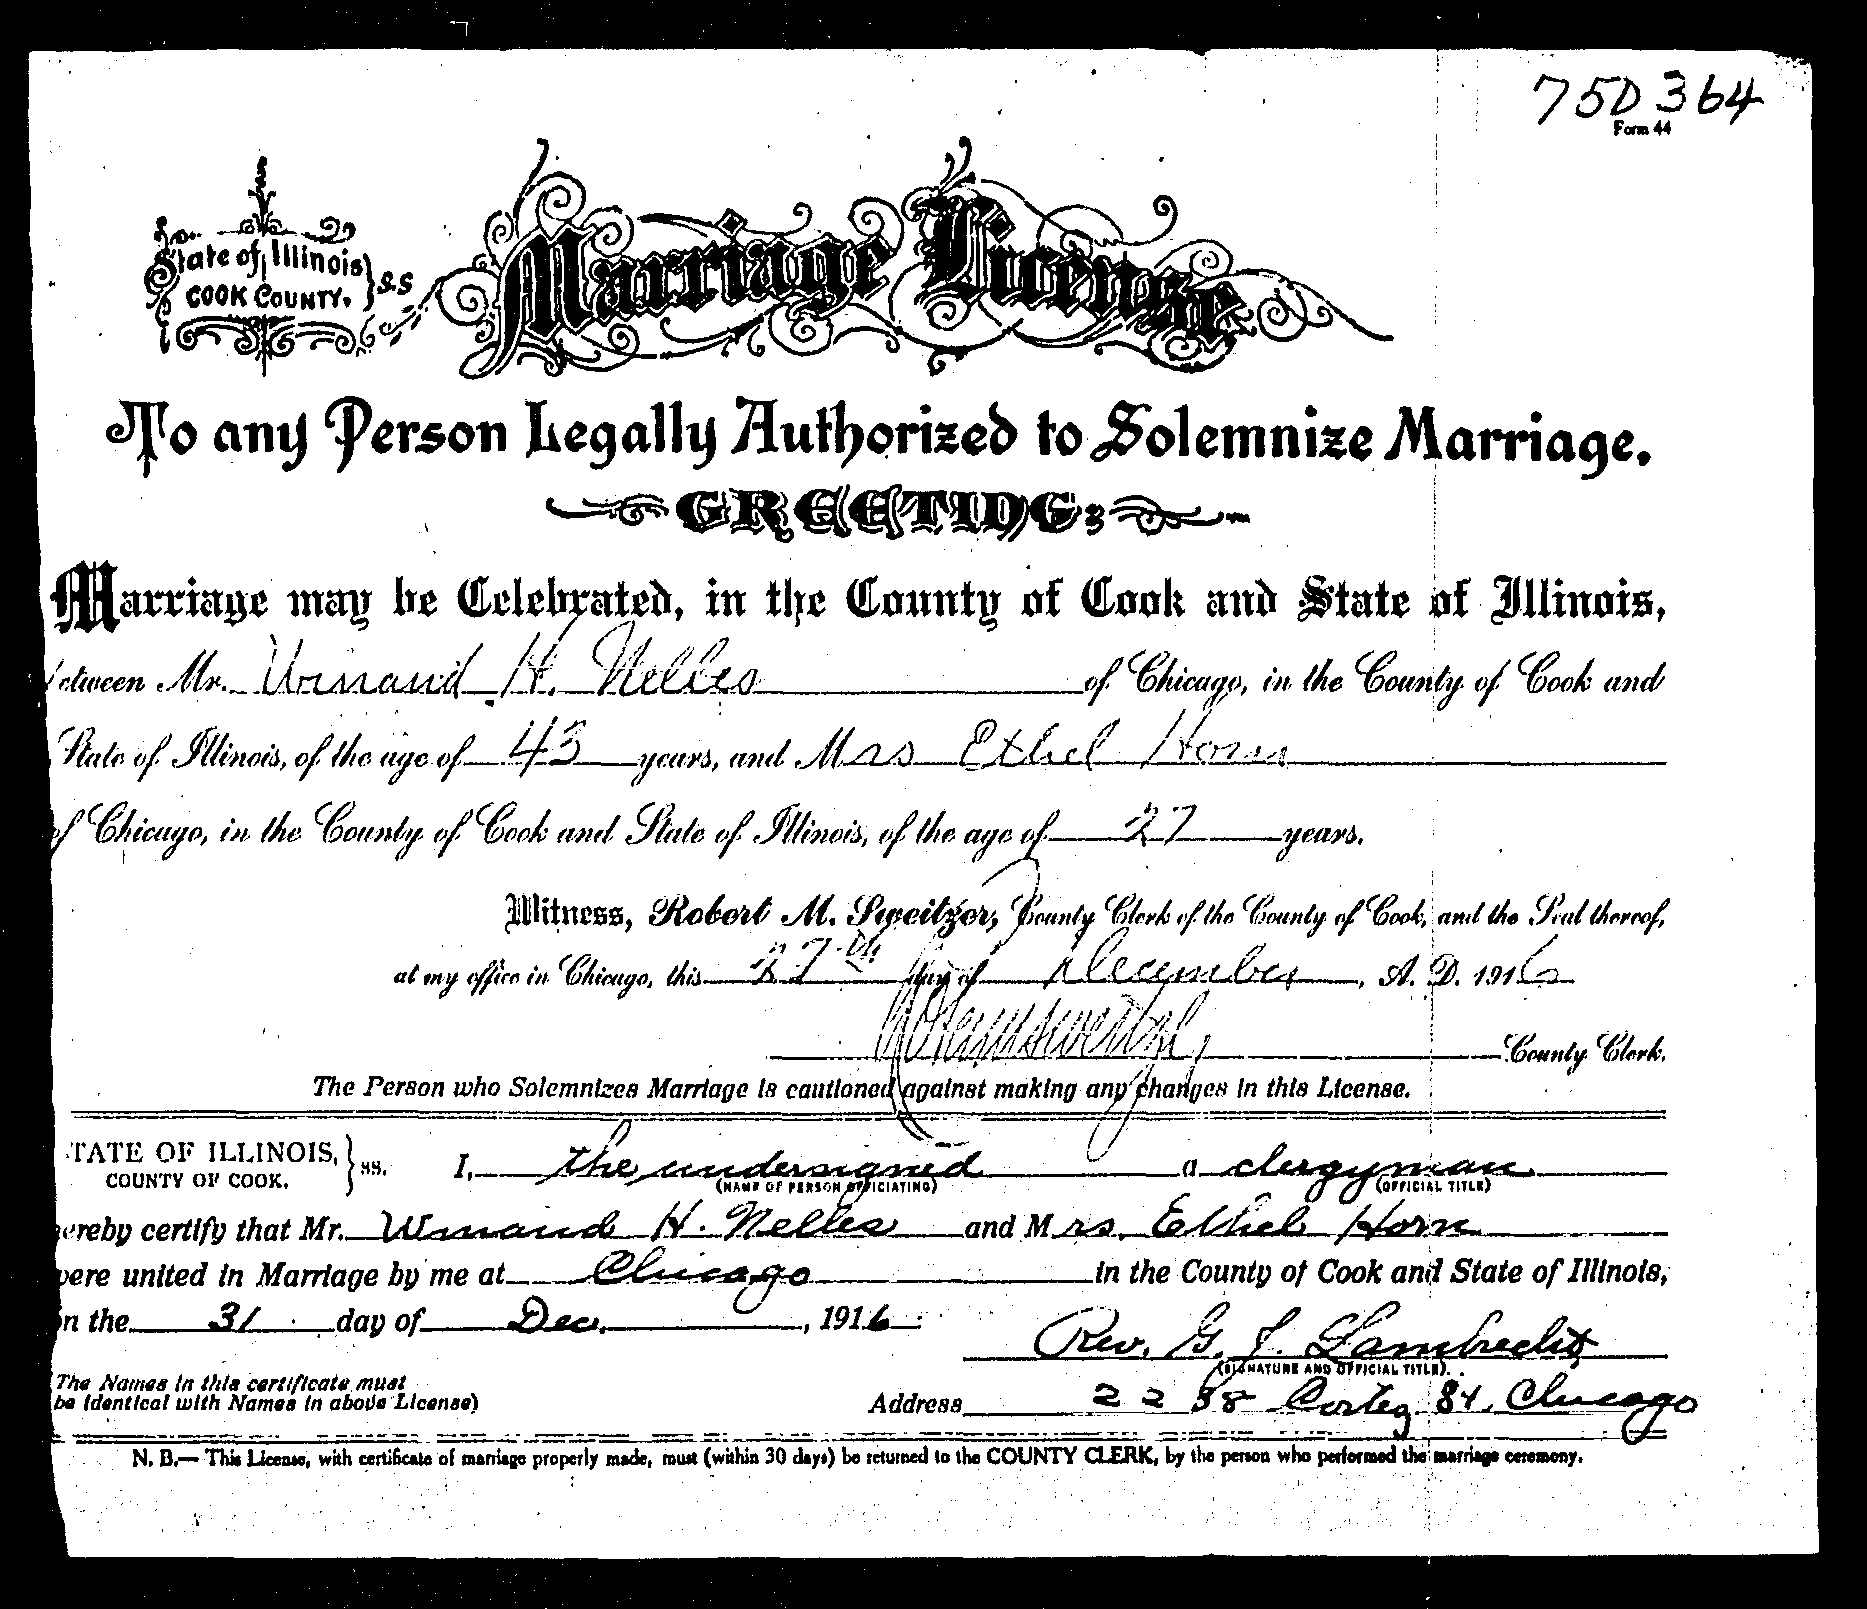 75D 364
Form 44
State of Illinois } S.S
COOK COUNTY.
Marriage License
To any Person Legally Authorized to Solemnize Marriage,
GREETING:
Marriage may be Celebrated, in the County of Cook and State of Illinois,
between Mr. Winand H. Nelles of Chicago, in the County of Cook and
State of Illinois, of the age of 43 years, and Mrs Ethel Horn
of Chicago, in the County of Cook and State of Illinois, of the age of 27 years.
Witness, Robert M. Sweitzer, County Clerk of the County of Cook, and the Seal thereof,
at my office in Chicago, this 27th day of December, A. D. 1916
County Clerk.
The Person who Solemnizes Marriage is cautioned against making any changes in this License.
TATE OF ILLINOIS, } ss. I, the undersigned a clergyman
COUNTY OF COOK. (NAME OF PERSON OFFICIATING) (OFFICIAL TITLE)
hereby certify that Mr. Winand H. Nelles and Mrs. Ethel Horn
were united in Marriage by me at Chicago in the County of Cook and State of Illinois,
on the 31 day of Dec. , 1916
Rev. G. J. Lambrecht
(SIGNATURE AND OFFICIAL TITLE).
(The Names in this certificate must
be identical with Names in above License)
Address 2238 Cortez St. Chicago
N. B.— This License, with certificate of marriage properly made, must (within 30 days) be returned to the COUNTY CLERK, by the person who performed the marriage ceremony.